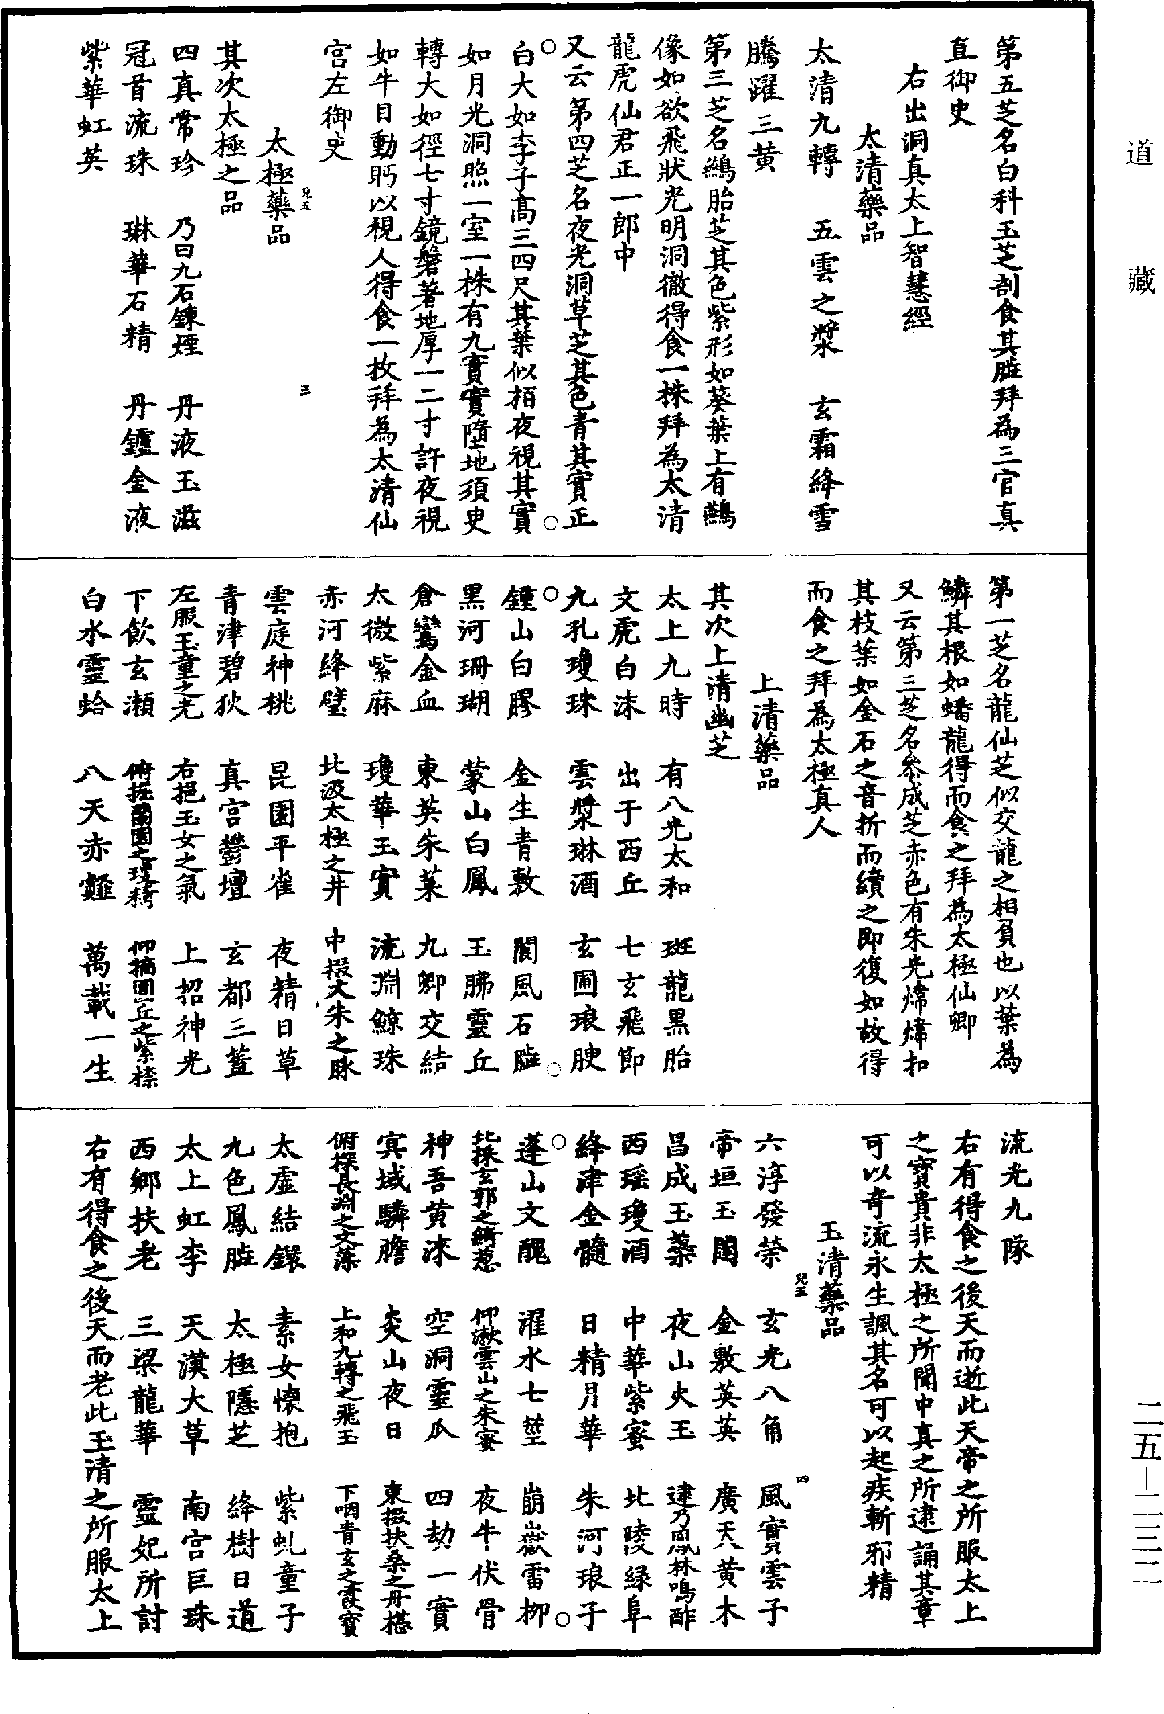 道藏
二五—二三二
第五芝名白科玉芝剖食其腦拜為三官真
直御史
右出洞真太上智慧經
太清藥品
太清九轉 五雲之漿 玄霜絳雪
騰躍三黃
第三芝名鷦胎芝其色紫形如葵葉上有鷦
像如欲飛狀光明洞徹得食一株拜為太清
龍虎仙君正一郎中
又云第四芝名夜光洞草芝其色青其實正
白大如李子高三四尺其葉似栢夜視其實
如月光洞照一室一株有九實實墮地須臾
轉大如徑七寸鏡盤著地厚一二寸許夜視
如牛目動眄以視人得食一枚拜為太清仙
宮左御史
三
兒五
太極藥品
其次太極之品
四真常珍 乃曰九石鍊煙 丹液玉滋
冠首流珠 琳華石精 丹鑪金液
紫華虹英
第一芝名龍仙芝似交龍之相負也以葉為
鱗其根如蟠龍得而食之拜為太極仙卿
又云第三芝名參成芝赤色有朱光煒煒扣
其枝葉如金石之音折而續之即復如故得
而食之拜為太極真人
上清藥品
其次上清幽芝
太上九時 有八光太和 斑龍黑胎
文虎白沫 出于西丘 七玄飛節
九孔瓊珠 雲漿琳酒 玄圃琅腴
鍾山白膠 金生青敷 閬風石腦
黑河珊瑚 蒙山白鳳 玉胏靈丘
倉鸞金血 東英朱菓 九卿交結
太微紫麻 瓊華玉實 流淵鯨珠
赤河絳璧 北汲太極之井 中掇大朱之脉
雲庭神桃 昆園平雀 夜精日草
青津碧狄 真宮鬱壇 玄都三蓋
左服玉童之光 右挹玉女之氣 上招神光
下飲玄瀨 俯挺蘭園之瓊精 仰摘圓丘之紫柰
白水靈蛤 八天赤薤 萬載一生
流光九隊
右有得食之後天而逝此天帝之所服太上
之寶貴非太極之所聞中真之所逮誦其章
可以寄流永生諷其名可以起疾斬邪精
玉清藥品
兒五
四
六淳發榮 玄光八角 風實雲子
帝垣玉闉 金敷英英 廣天黃木
昌成玉蘂 夜山火玉 逮乃鳳林鳴酢
西瑤瓊酒 中華紫蜜 北陵綠阜
絳津金髓 日精月華 朱河琅子
蓬山文醜 濯水七莖 崩嶽雷柳
北採玄郭之綺葱 仰漱雲山之朱蜜 夜牛伏骨
神吾黃漆 空洞靈瓜 四劫一實
宾域驎膽 炎山夜日 東掇扶桑之丹椹
俯探長淵之文藻 上和九轉之飛玉 下咽青玄之霞寶
太虛結鏍 素女懷抱 紫虬童子
九色鳳腦 太極隱芝 絳樹日道
太上虹李 天漢大草 南宮巨珠
西鄉扶老 三梁龍華 靈妃所討
右有得食之後天而老此玉清之所服太上